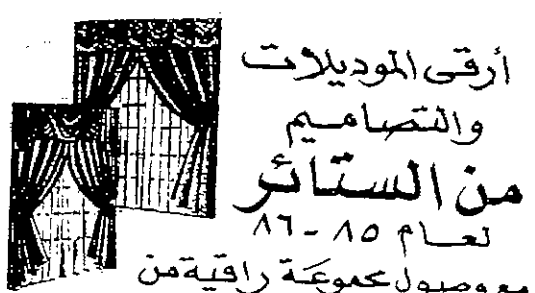 أرقى الموديلات
والتصاميم
من الستائر
لعام ٨٥ - ٨٦
مع وصول مجموعة راقية من